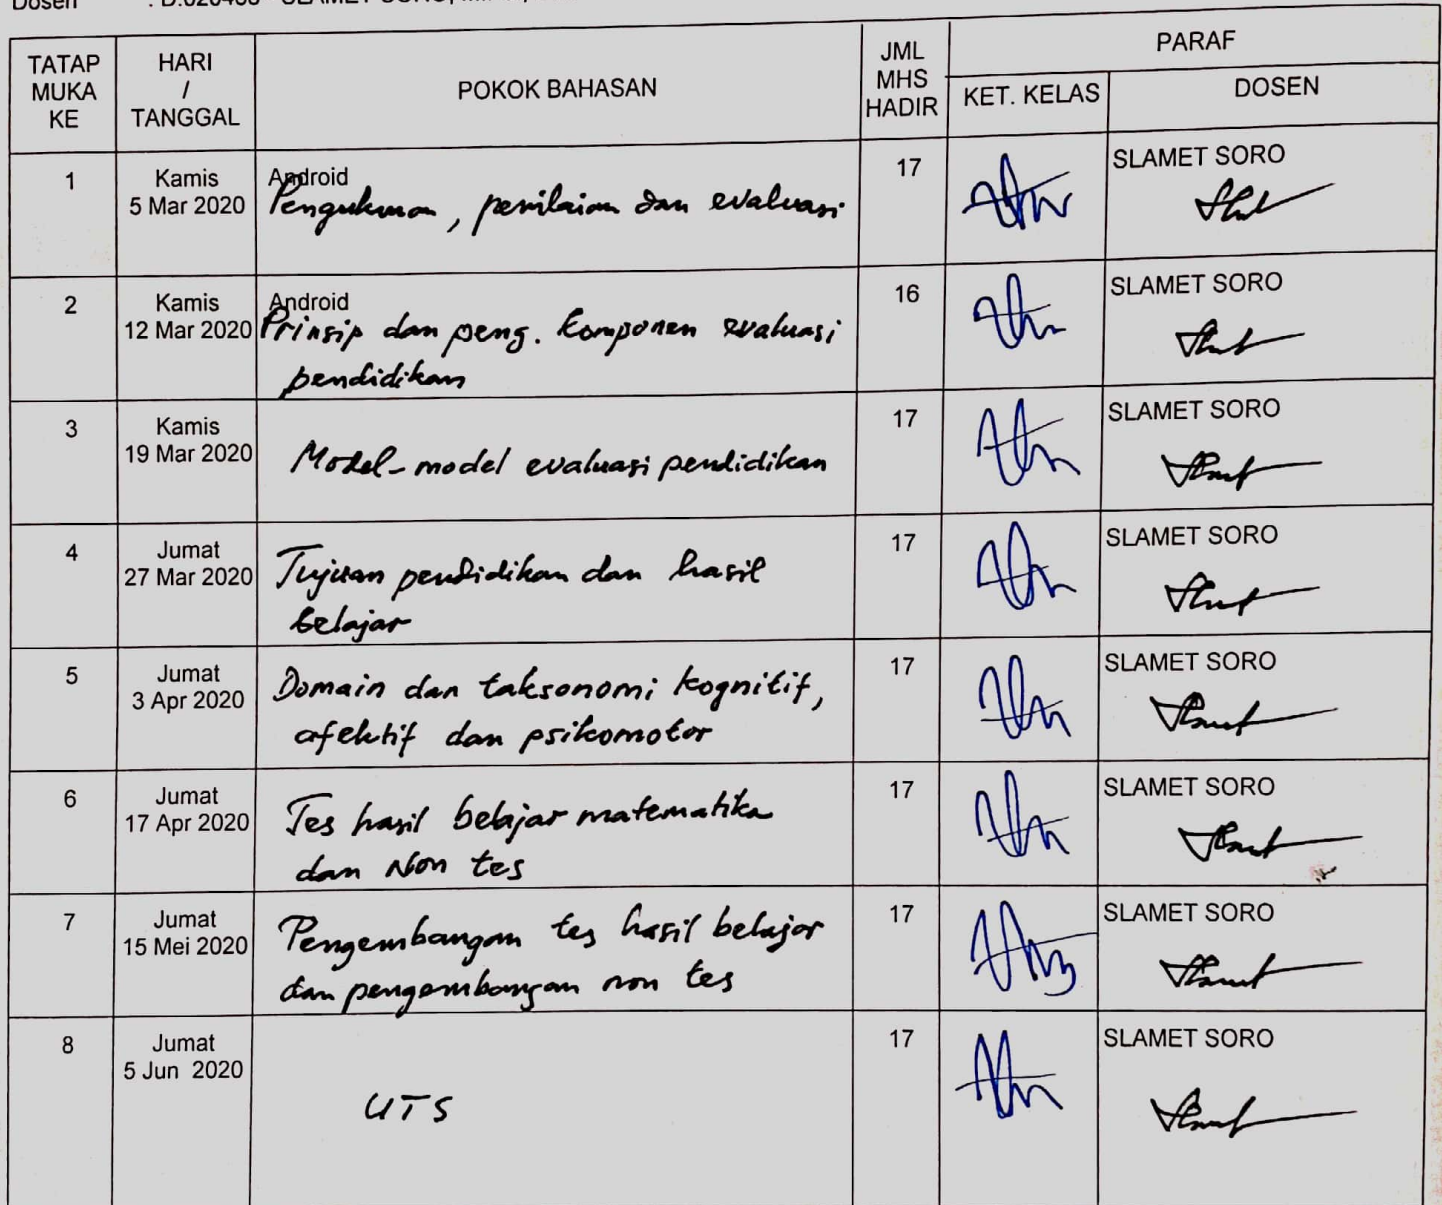 Dosen : D.020400 - SLAMET SORO,
TATAP MUKA KE
HARI / TANGGAL
POKOK BAHASAN
JML MHS HADIR
PARAF
KET. KELAS
DOSEN
1
Kamis
5 Mar 2020
Android
Pengukuran, penilaian dan evaluasi
17
SLAMET SORO
2
Kamis
12 Mar 2020
Android
Prinsip dan peng. komponen evaluasi
pendidikan
16
SLAMET SORO
3
Kamis
19 Mar 2020
Model-model evaluasi pendidikan
17
SLAMET SORO
4
Jumat
27 Mar 2020
Tujuan pendidikan dan hasil
belajar
17
SLAMET SORO
5
Jumat
3 Apr 2020
Domain dan taksonomi kognitif,
afektif dan psikomotor
17
SLAMET SORO
6
Jumat
17 Apr 2020
Tes hasil belajar matematika
dan Non tes
17
SLAMET SORO
7
Jumat
15 Mei 2020
Pengembangan tes hasil belajar
dan pengembangan non tes
17
SLAMET SORO
8
Jumat
5 Jun 2020
UTS
17
SLAMET SORO